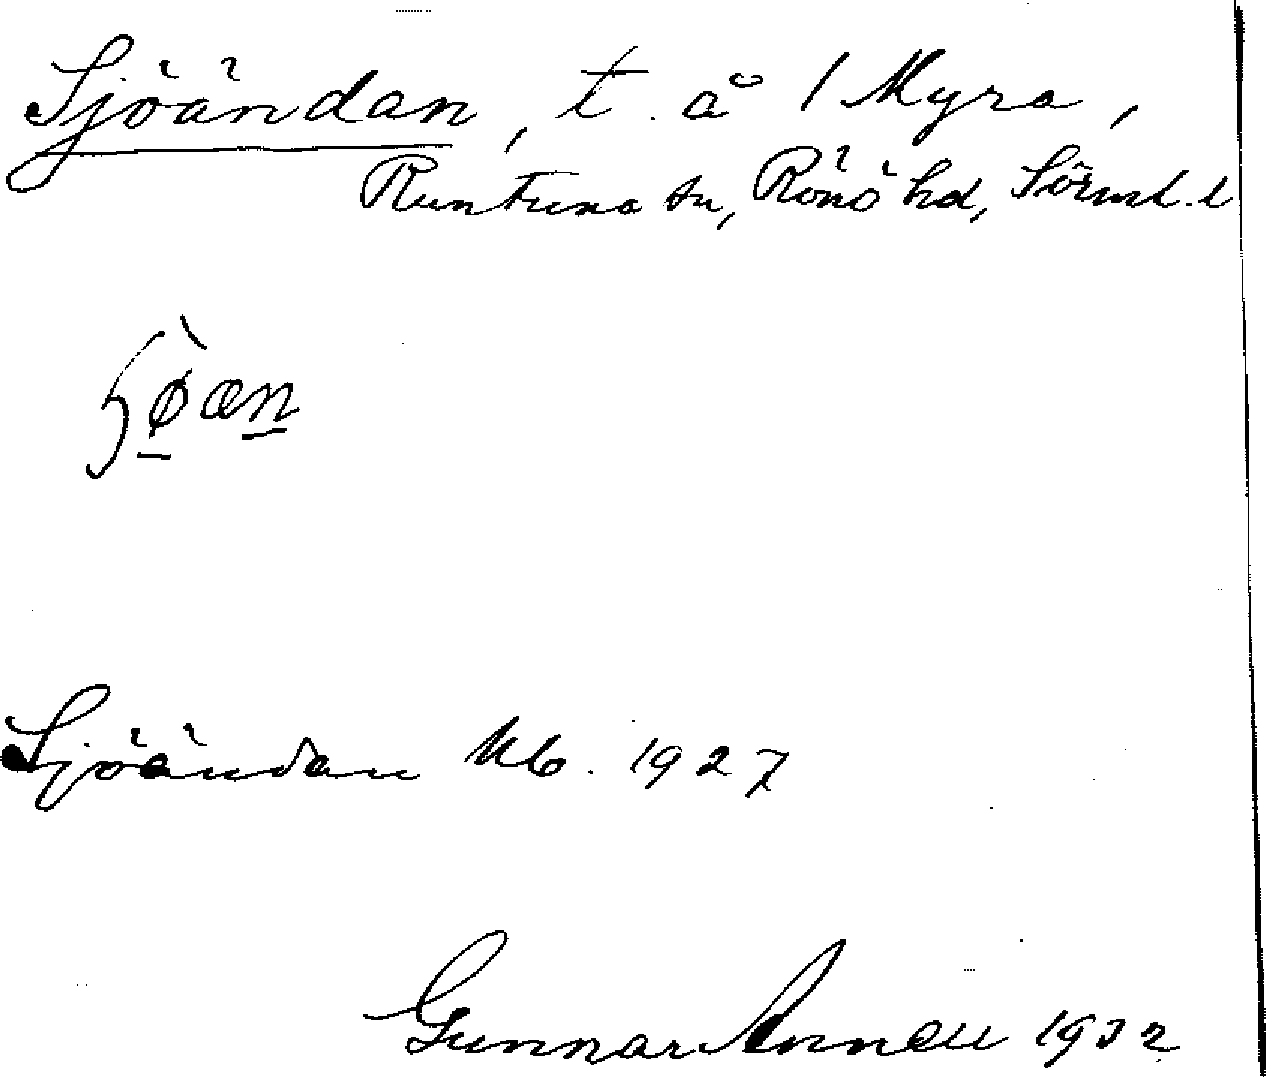 Sjöändan, t. å 1 Myra,
Runtuna sn, Rönö hd, Sörml. l
Sjöändan Kb. 1927
Gunnar Annell 1932